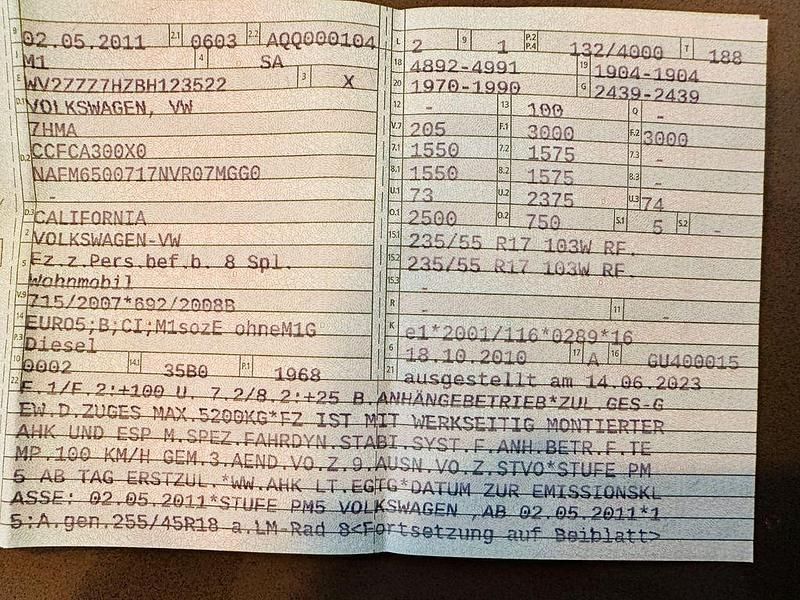 B 02.05.2011 2.1 0603 2.2 AQQ000104
M1 4 SA
E WV27777HZBH123522 3 X
D.1 VOLKSWAGEN, VW
7HMA
D.2 CCFCA300X0
NAFM6500717NVR07MGG0
-
D.3 CALIFORNIA
2 VOLKSWAGEN-VW
5 Fz.z.Pers.bef.b. 8 Spl.
Wohnmobil
V.9 715/2007*692/2008B
14 EURO5;B;CI;M1sozE ohneM1G
P.3 Diesel
10 0002 14.1 35B0 P.1 1968
L 2 9 1 P.2 P.4 132/4000 T 188
18 4892-4991 19 1904-1904
20 1970-1990 G 2439-2439
12 - 13 100 Q -
V.7 205 F.1 3000 F.2 3000
7.1 1550 7.2 1575 7.3 -
8.1 1550 8.2 1575 8.3 -
U.1 73 U.2 2375 U.3 74
O.1 2500 O.2 750 S.1 5 S.2 -
15.1 235/55 R17 103W RF.
15.2 235/55 R17 103W RF.
15.3 -
R - 11 -
K e1*2001/116*0289*16
6 18.10.2010 17 A 16 GU400015
21 ausgestellt am 14.06.2023
22 F.1/F.2:+100 U. 7.2/8.2:+25 B.ANHÄNGEBETRIEB*ZUL.GES-G
EW.D.ZUGES MAX.5200KG*FZ IST MIT WERKSEITIG MONTIERTER
AHK UND ESP M.SPEZ.FAHRDYN.STABI.SYST.F.ANH.BETR.F.TE
MP.100 KM/H GEM.3.AEND.VO.Z.9.AUSN.VO.Z.STVO*STUFE PM
5 AB TAG ERSTZUL.*WW.AHK LT.EGTG*DATUM ZUR EMISSIONSKL
ASSE: 02.05.2011*STUFE PM5 VOLKSWAGEN ,AB 02.05.2011*1
5:A.gen.255/45R18 a.LM-Rad 8<Fortsetzung auf Beiblatt>